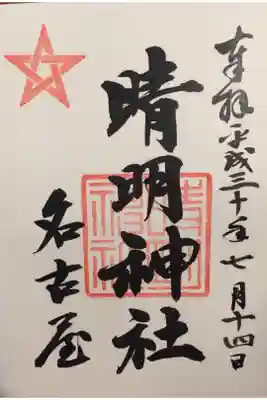 奉拝 平成三十年七月十四日
晴明神社
名古屋